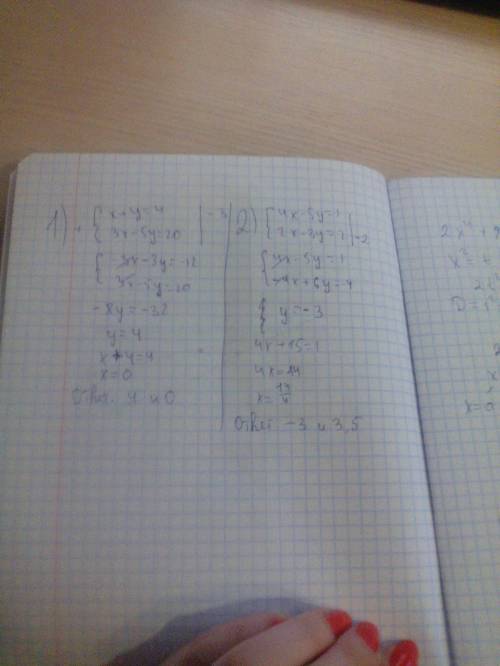 1) { x+y=4 | -3
+ { 3x-5y=20
{ -3x-3y=-12
3x-5y=20
-8y=-32
y=4
x+4=4
x=0
Ответ 4 и 0
2) { 4x-5y=1
{ 2x-3y=2 | -2
{ 4x-5y=1
-4x+6y=-4
{ y=-3
4x+15=1
4x=14
x=14/4
Ответ -3 и 3,5
2x⁴+9
x²=t
D=
x=0